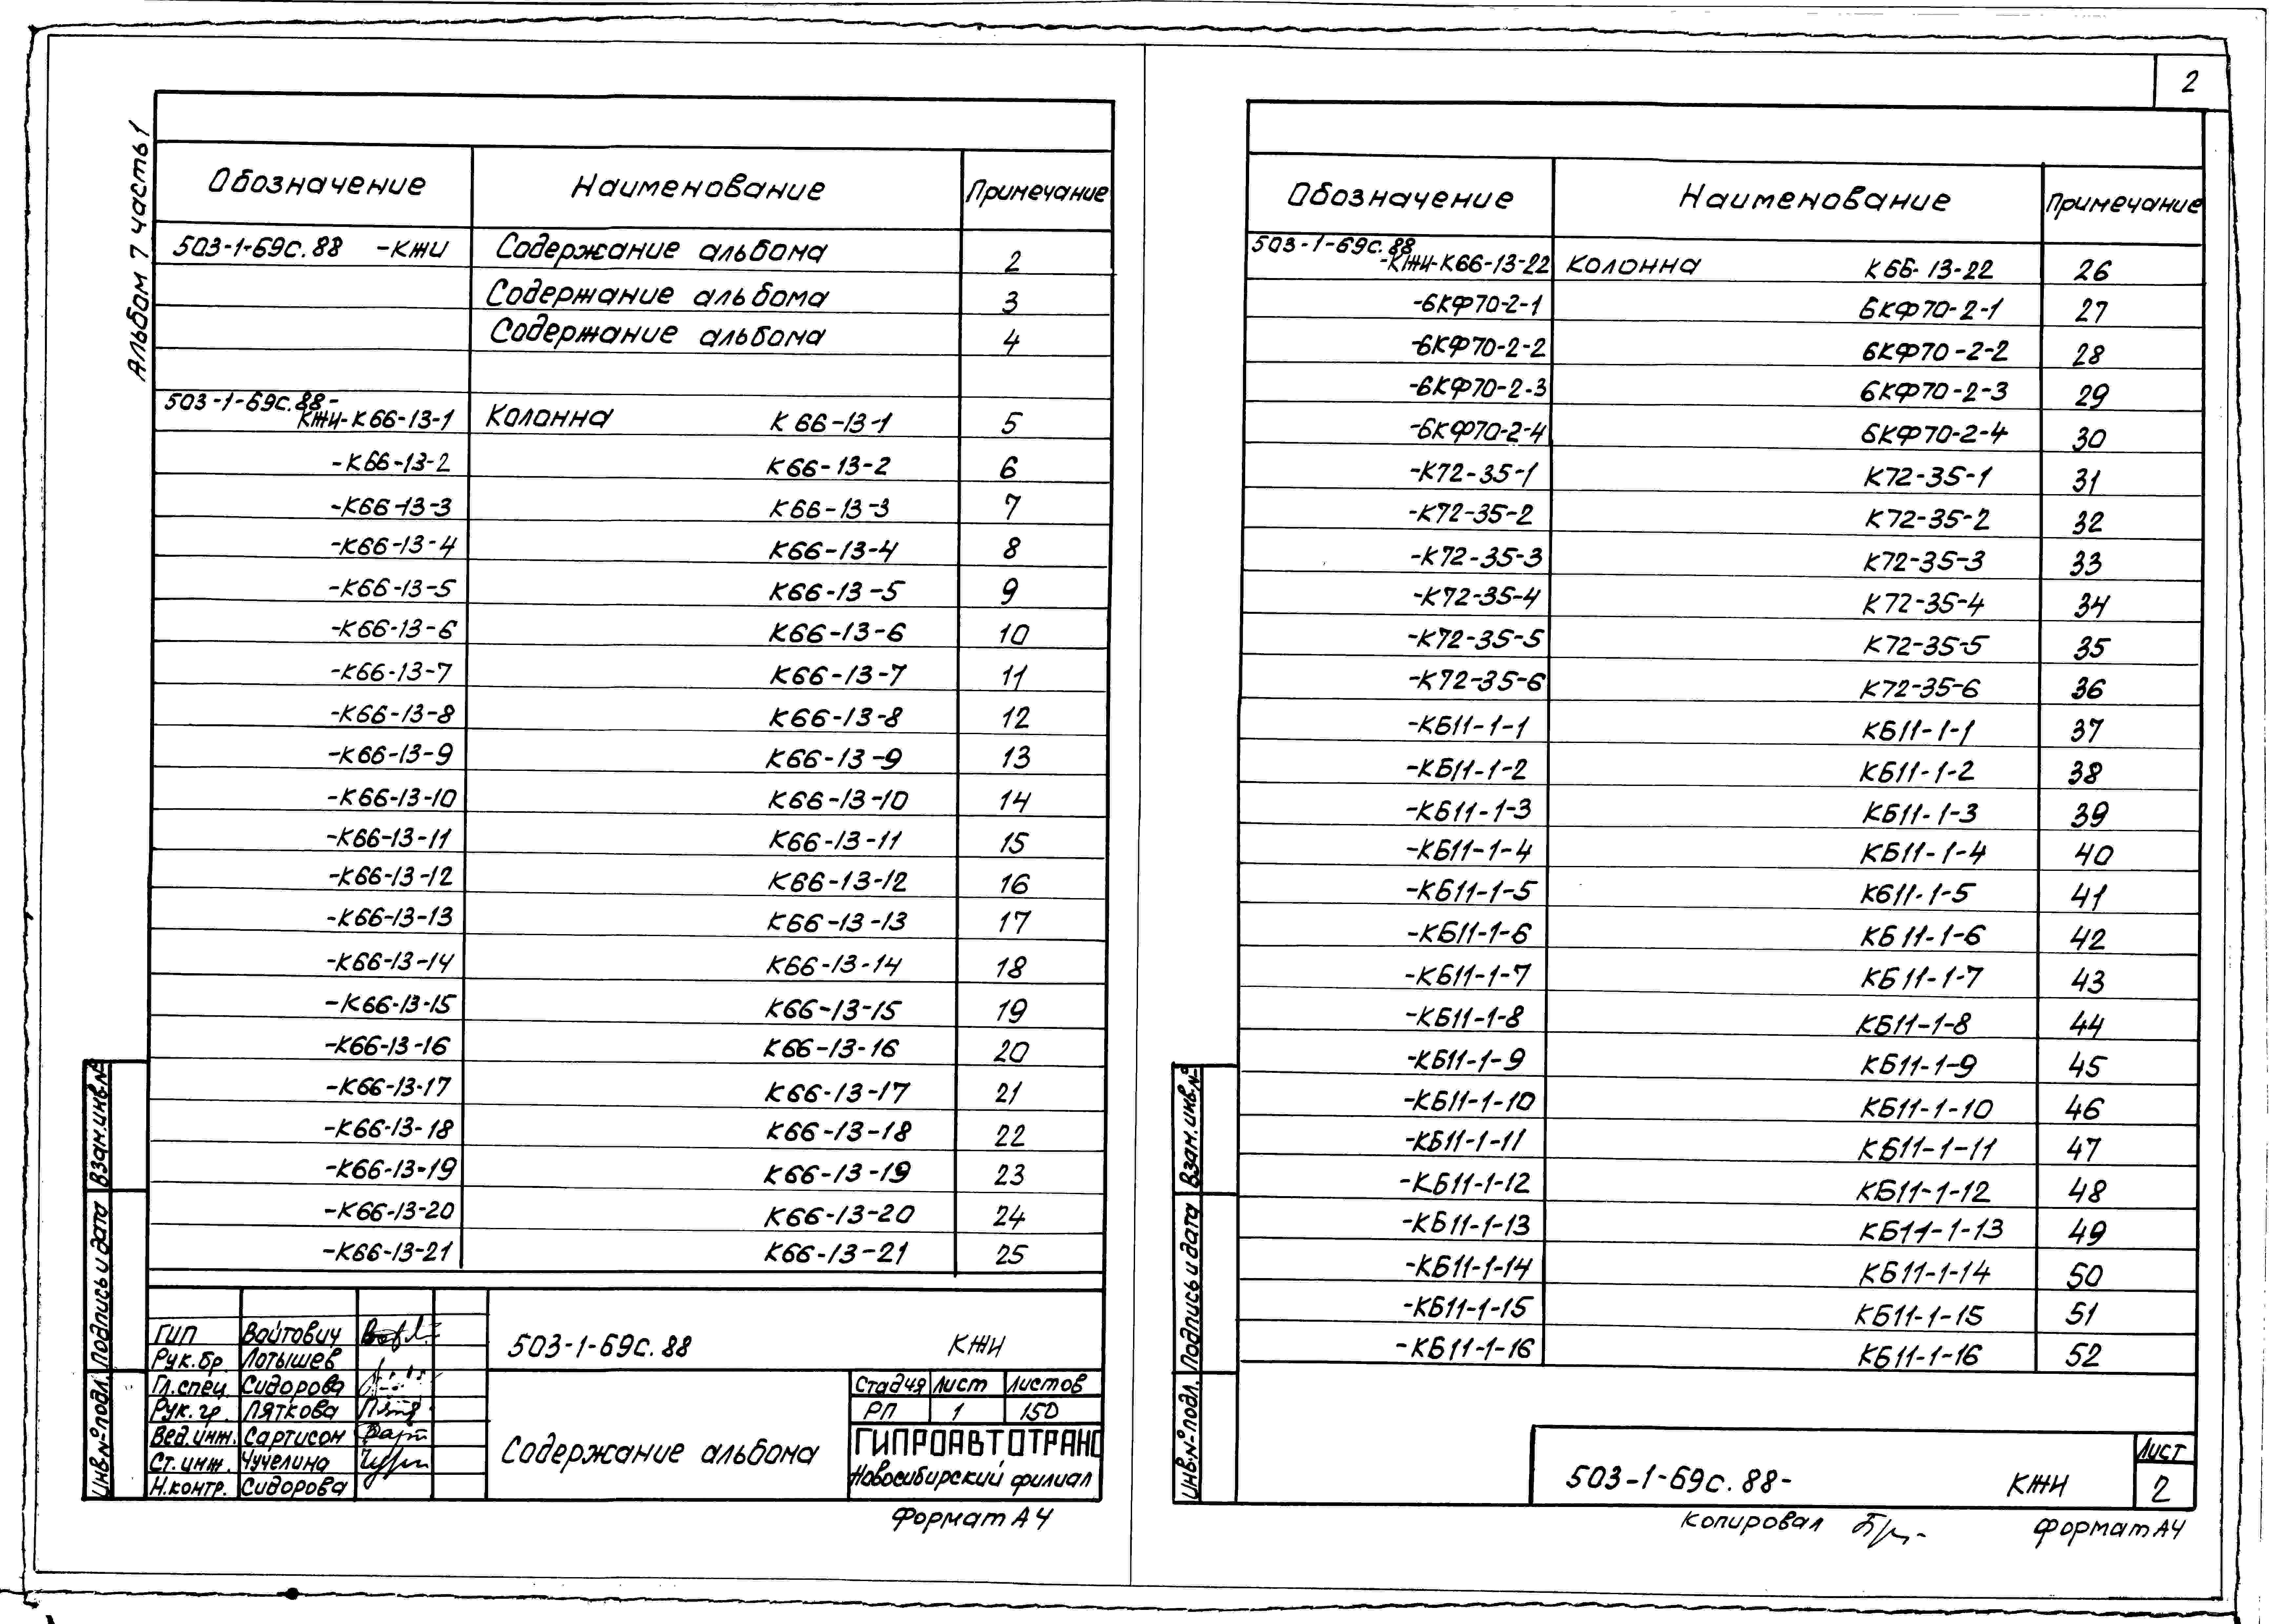 2
Альбом 7 часть 1
Обозначение Наименование Примечание
503-1-69с.88 -КЖИ Содержание альбома 2
Содержание альбома 3
Содержание альбома 4
503-1-69с.88-
КЖИ-К66-13-1 Колонна К 66-13-1 5
-К66-13-2 К66-13-2 6
-К66-13-3 К66-13-3 7
-К66-13-4 К66-13-4 8
-К66-13-5 К66-13-5 9
-К66-13-6 К66-13-6 10
-К66-13-7 К66-13-7 11
-К66-13-8 К66-13-8 12
-К66-13-9 К66-13-9 13
-К66-13-10 К66-13-10 14
-К66-13-11 К66-13-11 15
-К66-13-12 К66-13-12 16
-К66-13-13 К66-13-13 17
-К66-13-14 К66-13-14 18
-К66-13-15 К66-13-15 19
-К66-13-16 К66-13-16 20
-К66-13-17 К66-13-17 21
-К66-13-18 К66-13-18 22
-К66-13-19 К66-13-19 23
-К66-13-20 К66-13-20 24
-К66-13-21 К66-13-21 25
Взам.инв.№
Подпись и дата
Инв.№подл.
ГИП Войтович
Рук.бр. Лотышев
Гл.спец. Сидорова
Рук.гр. Пяткова
Вед.инж. Сартисон
Ст.инж. Чучелина
Н.контр. Сидорова
503-1-69с.88 КЖИ
Содержание альбома
Стадия Лист Листов
РП 1 150
ГИПРОАВТОТРАНС
Новосибирский филиал
Формат А4
Обозначение Наименование Примечание
503-1-69с.88
-КЖИ-К66-13-22 Колонна К66-13-22 26
-6КФ70-2-1 6КФ70-2-1 27
-6КФ70-2-2 6КФ70-2-2 28
-6КФ70-2-3 6КФ70-2-3 29
-6КФ70-2-4 6КФ70-2-4 30
-К72-35-1 К72-35-1 31
-К72-35-2 К72-35-2 32
-К72-35-3 К72-35-3 33
-К72-35-4 К72-35-4 34
-К72-35-5 К72-35-5 35
-К72-35-6 К72-35-6 36
-КБ11-1-1 КБ11-1-1 37
-КБ11-1-2 КБ11-1-2 38
-КБ11-1-3 КБ11-1-3 39
-КБ11-1-4 КБ11-1-4 40
-КБ11-1-5 КБ11-1-5 41
-КБ11-1-6 КБ11-1-6 42
-КБ11-1-7 КБ11-1-7 43
-КБ11-1-8 КБ11-1-8 44
-КБ11-1-9 КБ11-1-9 45
-КБ11-1-10 КБ11-1-10 46
-КБ11-1-11 КБ11-1-11 47
-КБ11-1-12 КБ11-1-12 48
-КБ11-1-13 КБ11-1-13 49
-КБ11-1-14 КБ11-1-14 50
-КБ11-1-15 КБ11-1-15 51
-КБ11-1-16 КБ11-1-16 52
Взам.инв.№
Подпись и дата
Инв.№подл.
503-1-69с.88- КЖИ
Лист
2
Копировал
Формат А4